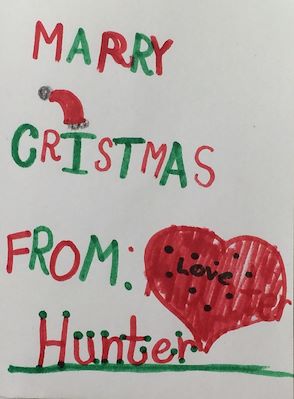 MARRY
CRISTMAS
FROM:
Love
Hunter